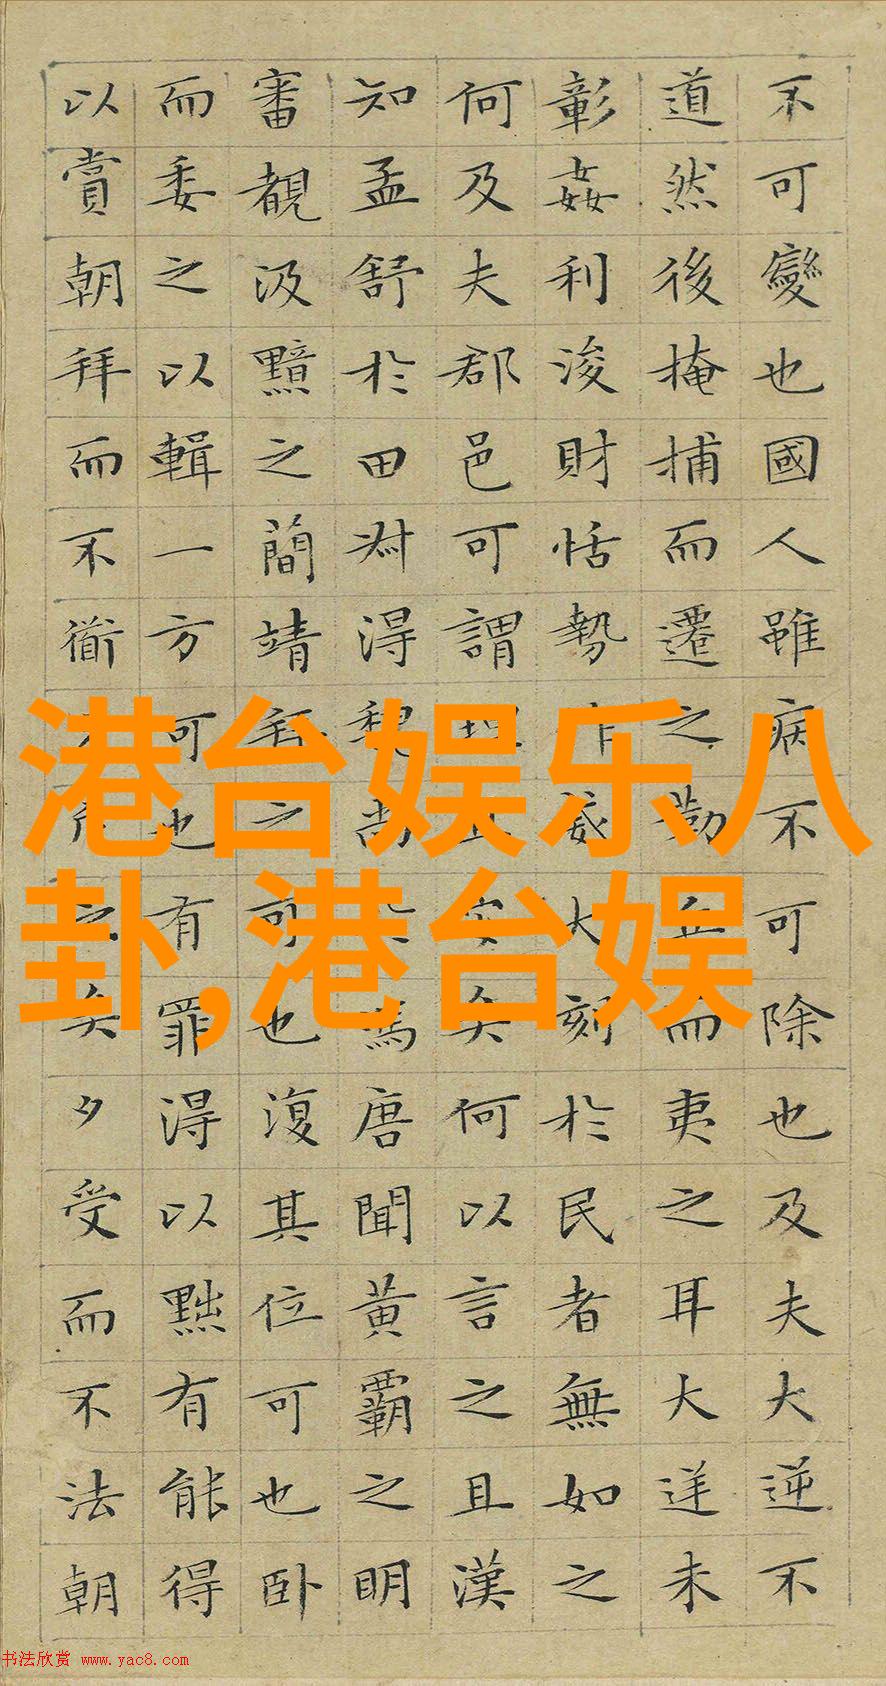 不可變也國人雖病不可除也及夫大逆不
道然後掩捕而遷之勒兵而夷之耳大逆未
彰姦利浚財怙勢作威大刻於民者無如之
何及夫郡邑可謂理且安矣何以言之且漢
知孟舒於田叔得魏尚於馮唐聞黃霸之明
審覩汲黯之簡靖拜之可也復其位可也卧
而委之以輯一方可也有罪得以黜有能得
以賞朝拜而不道夕斥之矣夕受而不法朝
港台娱乐八
卦,港台娱
书法欣赏 www.yac8.com